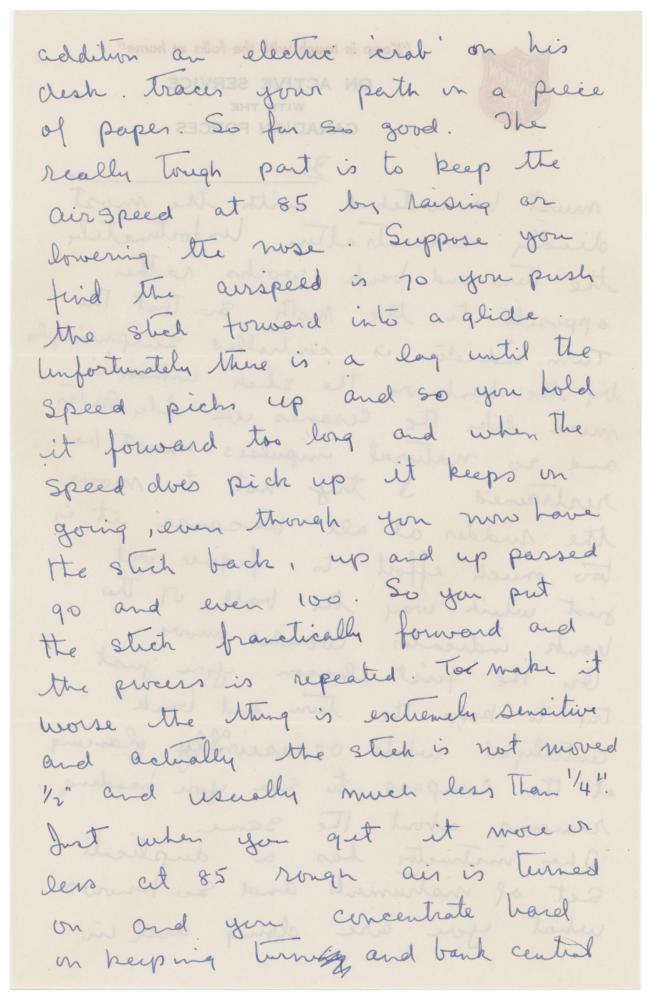 addition an electric 'crab' on his
desk. traces your path on a piece
of paper So far so good. The
really tough part is to keep the
airspeed at 85 by raising or
lowering the nose. Suppose you
find the airspeed is 70 you push
the stick forward into a glide.
Unfortunately there is a lag until the
speed picks up and so you hold
it forward too long and when the
speed does pick up it keeps on
going, even though you now have
the stick back, up and up passed
90 and even 100. So you put
the stick franctically forward and
the process is repeated. To make it
worse the thing is esctremely sensitive
and actually the stick is not moved
1/2" and usually much less than 1/4".
Just when you get it more or
less at 85 rough air is turned
on and you concentrate hard
on keeping turn and bank central